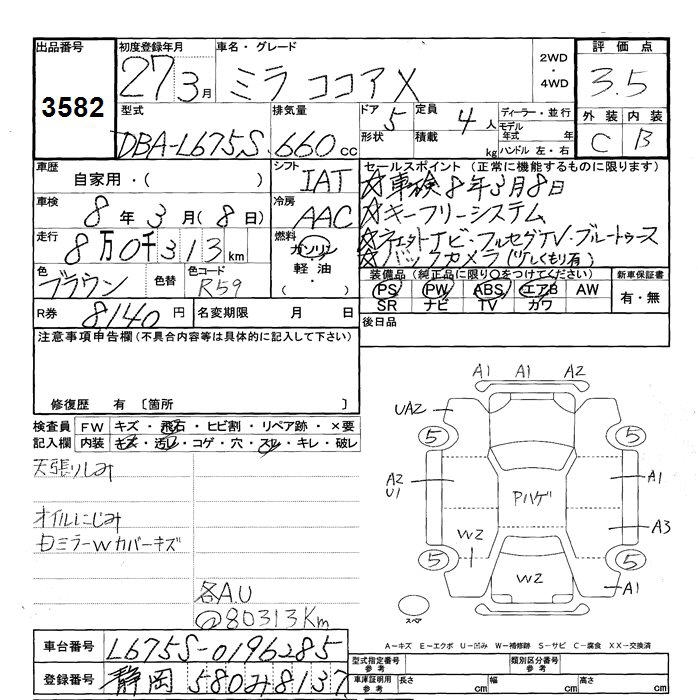 出品番号 初度登録年月 車名・グレード 2WD ・ 4WD 評価点
3582 27 3月 ミラ ココア X 3.5
型式 排気量 ドア 5 定員 4人 ディーラー・並行 外装 内装
DBA-L675S 660cc 形状 積載 kg モデル年式 年 ハンドル 左・右 C B
車歴 自家用・( ) シフト IAT セールスポイント (正常に機能するものに限ります)
☆車検8年3月8日
車検 8年3月(8日) 冷房 AAC ☆キーフリーシステム
走行 8万0千313km 燃料 ガソリン・軽油・ ☆ナビ・フルセグTV・ブルートゥース
☆バックカメラ(少しくもり有)
色 ブラウン 色替 色コード R59 装備品 (純正品に限り○をつけてください) 新車保証書
PS PW ABS エアB AW 有・無
SR ナビ TV カワ
R券 8140円 名変期限 月 日 後日品
注意事項申告欄(不具合内容等は具体的に記入して下さい)
修復歴 有 〔箇所 〕
検査員 FW キズ・飛石・ヒビ割・リペア跡・×要
記入欄 内装 キズ・汚レ・コゲ・穴・スレ・キレ・破レ
天張りしみ
オイルにじみ
ミラーWカバーキズ
各A.U
@80313Km
A1 A1 A2
UA2
5 5
A2 U1 Pハゲ A1
A3
W2
5 5
W2 A1
スペア
A-キズ E-エクボ U-凹み W-補修跡 S-サビ C-腐食 XX-交換済
車台番号 L675S-0196285 型式指定番号 参考 類別区分番号 参考
登録番号 静岡 580み8137 車庫証明用 参考 長さ cm 幅 cm 高さ cm